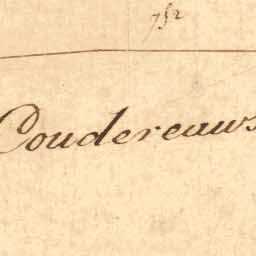 752
Coudereaus